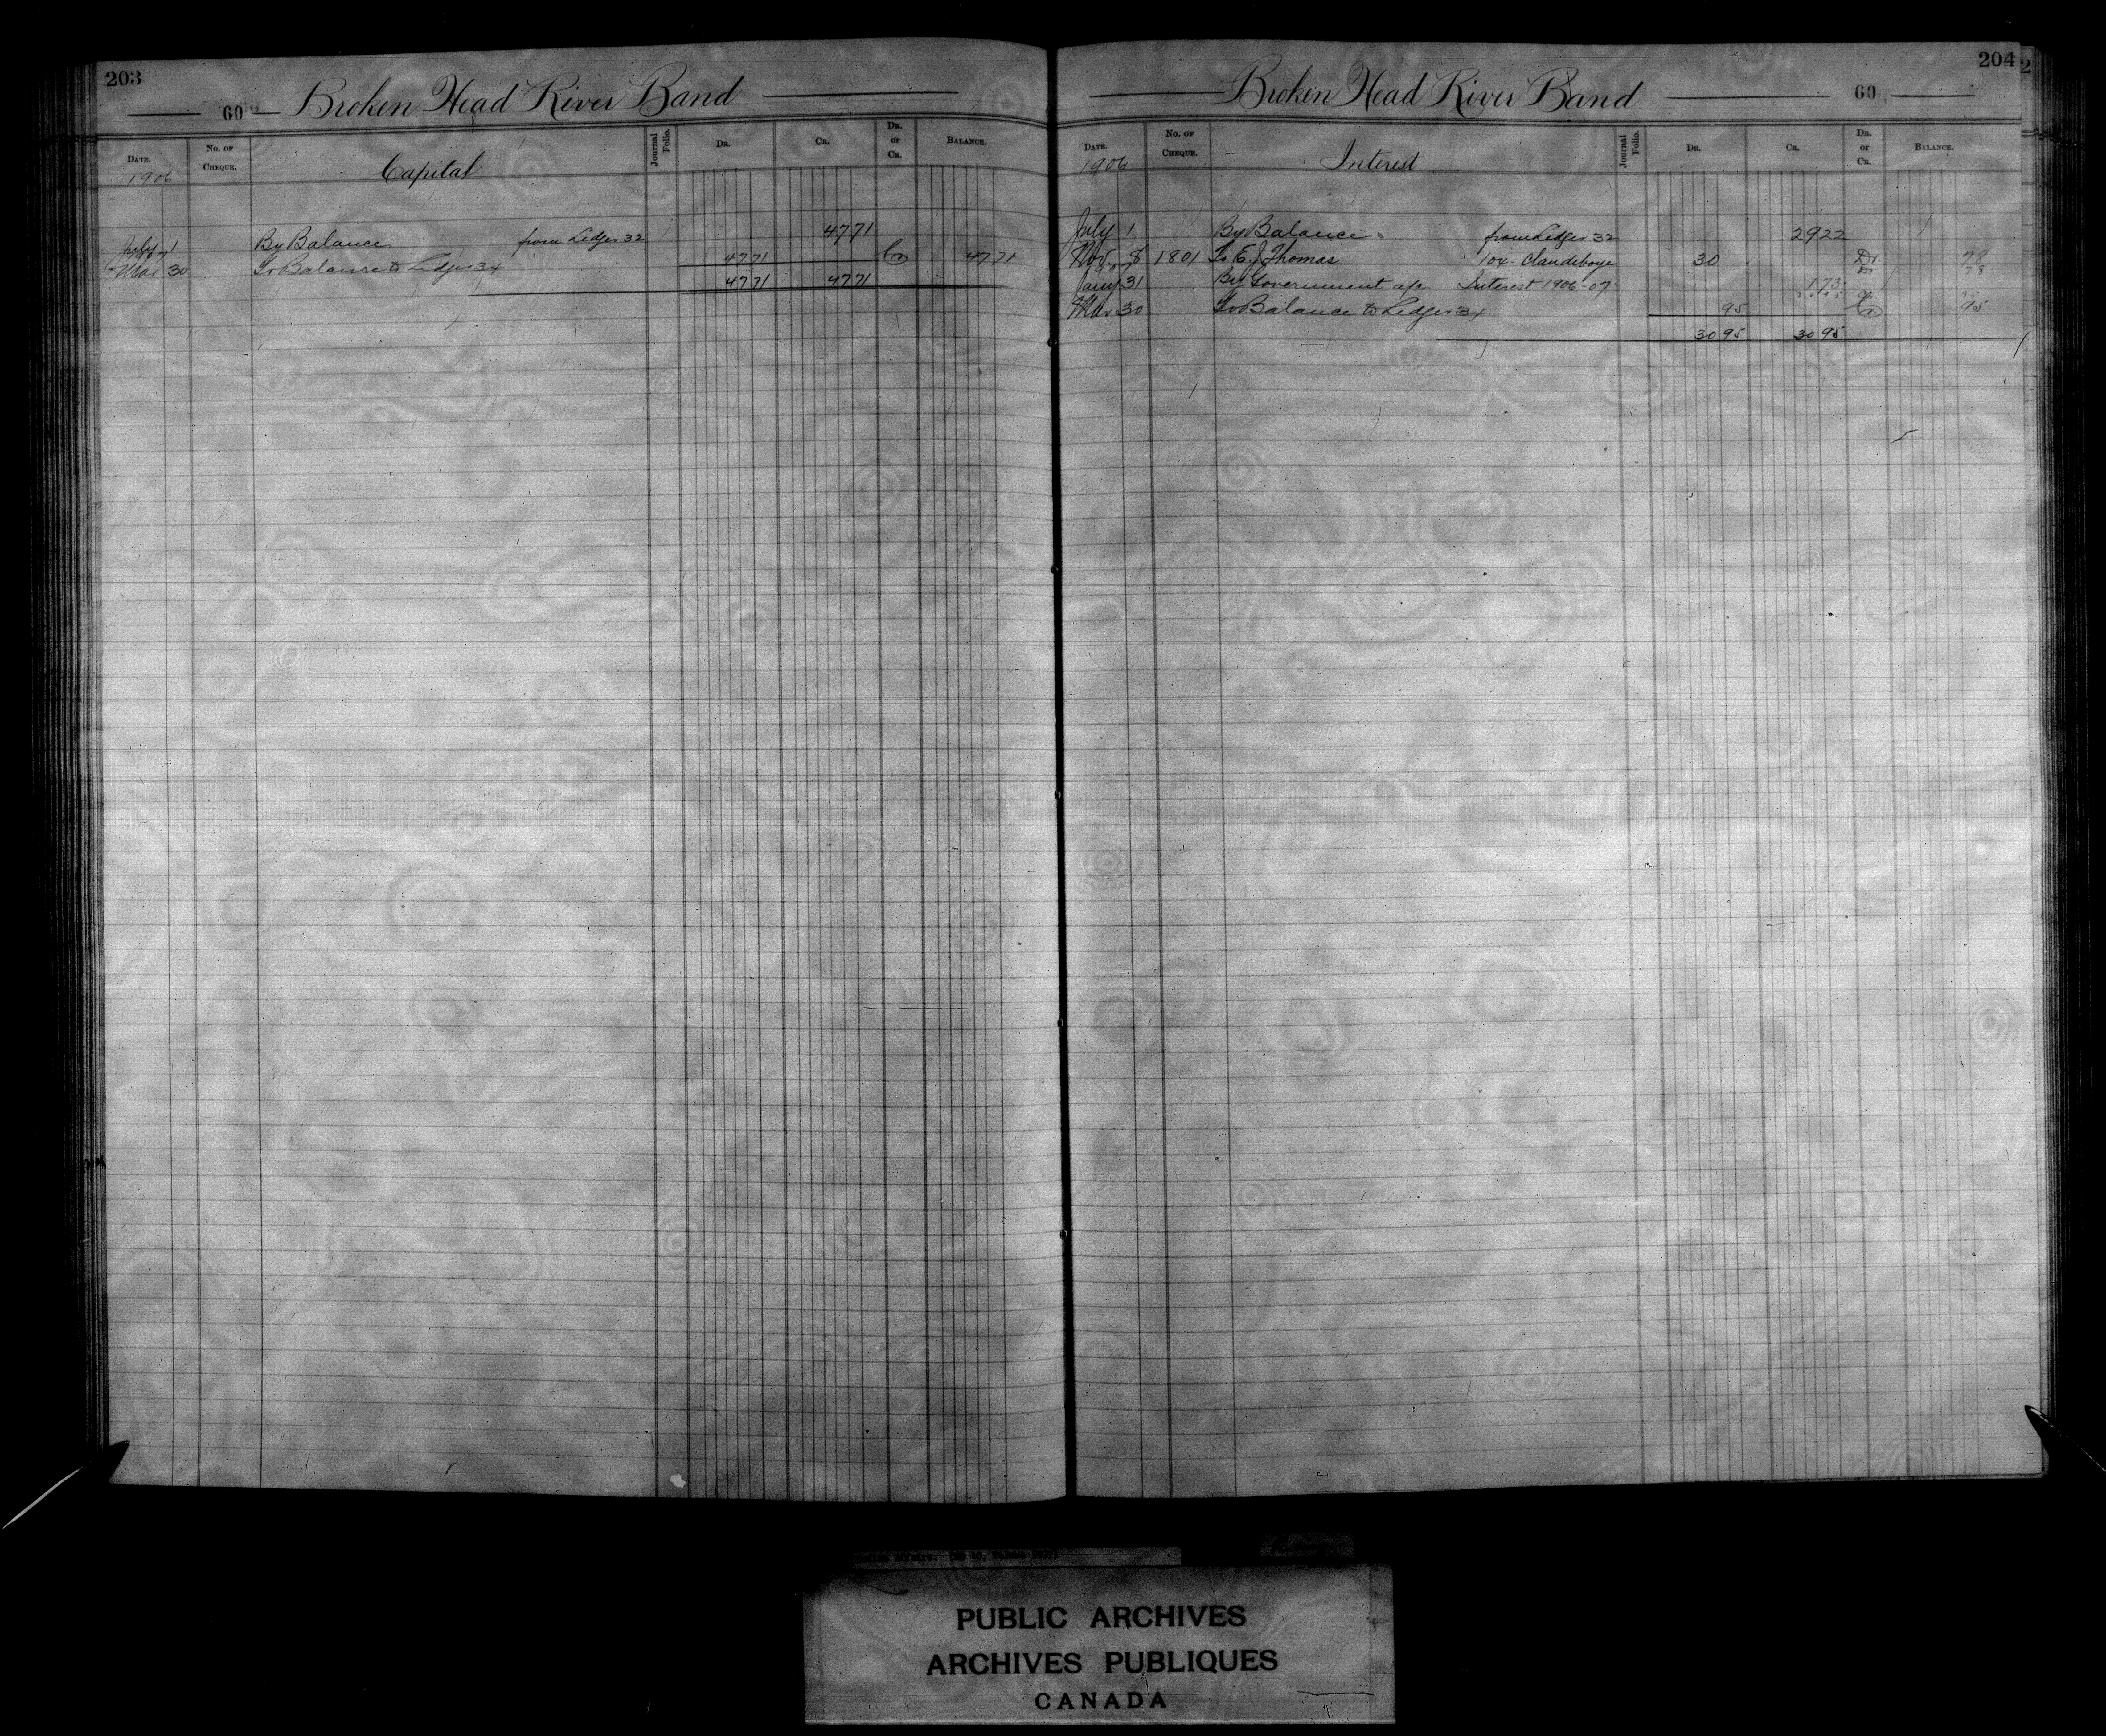 203
60 Broken Head River Band
Date. No. of Cheque. Capital Journal Folio. Dr. Cr. Dr. or Cr. Balance.
1906
July 1 By Balance from Ledger 32 47 71
07
Mar 30 To Balance to Ledger 34 47 71 Cr 47 71
47 71 47 71
204
Broken Head River Band 60
Date. No. of Cheque. Interest Journal Folio. Dr. Cr. Dr. or Cr. Balance.
1906
July 1 By Balance from Ledger 32 29 22
Nov. 8 1801 To E. J. Thomas 104 Claudeboye 30 Dr. 78
07 Dr 78
Jany 31 By Government a/c Interest 1906-07 1 73
30 95 Cr. 95
Mar 30 To Balance to Ledger 34 95 Cr. 95
30 95 30 95
PUBLIC ARCHIVES
ARCHIVES PUBLIQUES
CANADA